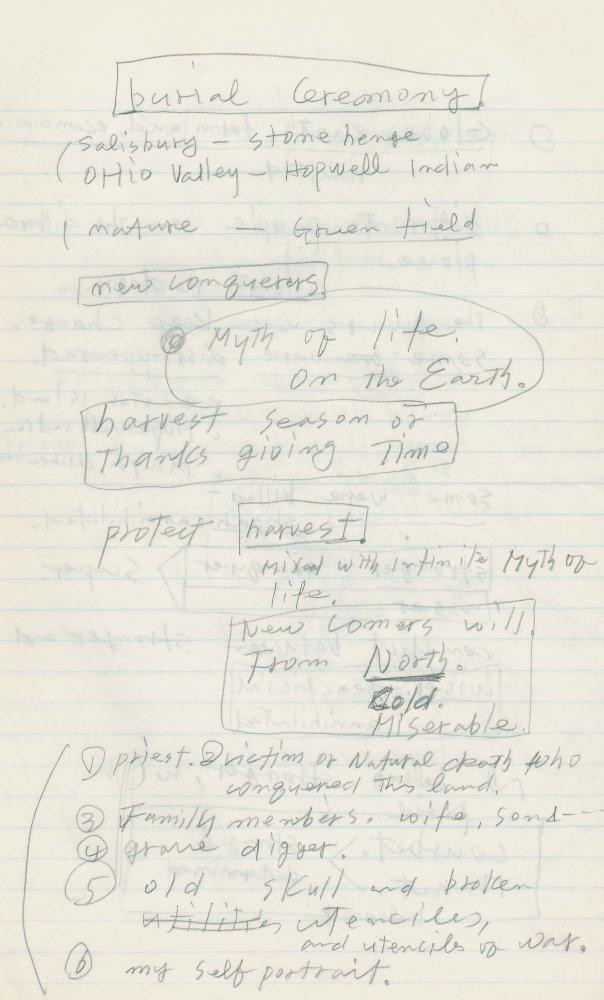 burial Ceremony.
Salisbury – stone henge
OHio Valley – Hopwell Indian
nature — Green field
new conquerers.
Myth of life.
On the Earth.
harvest season or
Thanks giving Time
protect harvest.
Mixed with infinite Myth of
life.
New Comers will
From North.
Cold.
Miserable.
① priest. ② victim or Natural death who
conquered this land.
③ Family members. wife, sond---
④ grave digger.
⑤ old skull and broken
utilities utenciles,
and utenciles of war.
⑥ my self portrait.